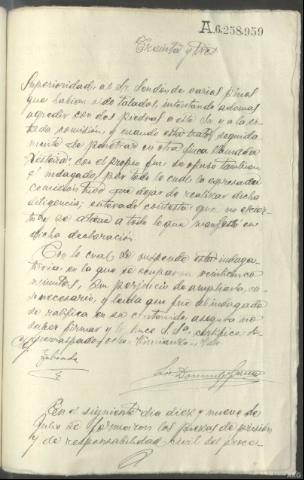 A.6.258.959
Treinta y tres
Superioridad, al Sr. Sendon de varios pinos
que habian sido talados, intentando ademas
agredir con dos piedras a este Sr. y a la
comision, y cuando estos tratan seguida
mente de penetrar en otra finca llamada
con el propio fin se opuso tambien
el indagado, por todo lo cual la expresada
comision tuvo que dejar de realizar dicha
diligencia; enterado contesta: que no es cier
to y se atiene a todo lo que manifesto en
dicha declaracion.
Con lo cual se suspende esta indaga
toria en la que se ocuparon
minutos, sin perjuicio de ampliarla, ca
so necesario, y leida que fue al indagado
se ratifica en su contenido, asegura no
saber firmar y lo hace S.Sa. certifico
En el siguiente dia diez y nueve de
Julio se formaron las piezas de prision
y de responsabilidad civil del proce-